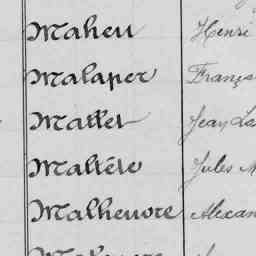 Maheu Henri
Malaper Franço
Mallet Jean La
Maltête Jules M
Malheuvre Alexan